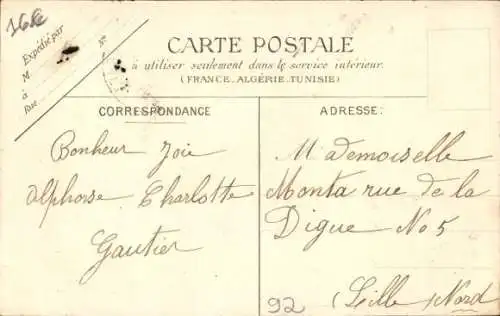 16e
Expédié par
M
à
Rue
N°
CARTE POSTALE
à utiliser seulement dans le service intérieur
(FRANCE_ALGÉRIE_TUNISIE)
CORRESPONDANCE
Bonheur Joie
Alphorse Charlotte
Gautier
ADRESSE:
Mademoiselle
Monta rue de la
Digue No 5
(Lille) Nord
92